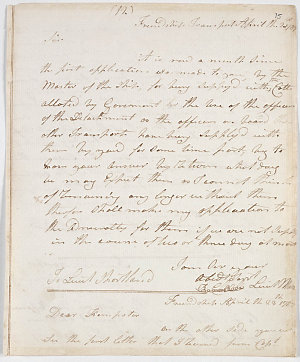 (14)
Friendship Transport April the 24th 1787
Sir
it is now a month since
the first application was made to you by the
Master of the Ship, for being Supply'd with
allowed by Government for the use of the officers
of the Detachment as the officers on board
other Transports have being Supply'd with
them by you for Some time past, by to
your answer by return what day
we may Expect them as I cannot think
of remaining any longer without them
Shall make my application to
the Admiralty for them if we are not Supply'd
in the course of two or three day at most
I am Sir your
obed Servt
To Lieut Shortland
Lieut
Friendship April the 24th 178
Dear Kempster
on the other side you will
see the first letter that I have from Capt